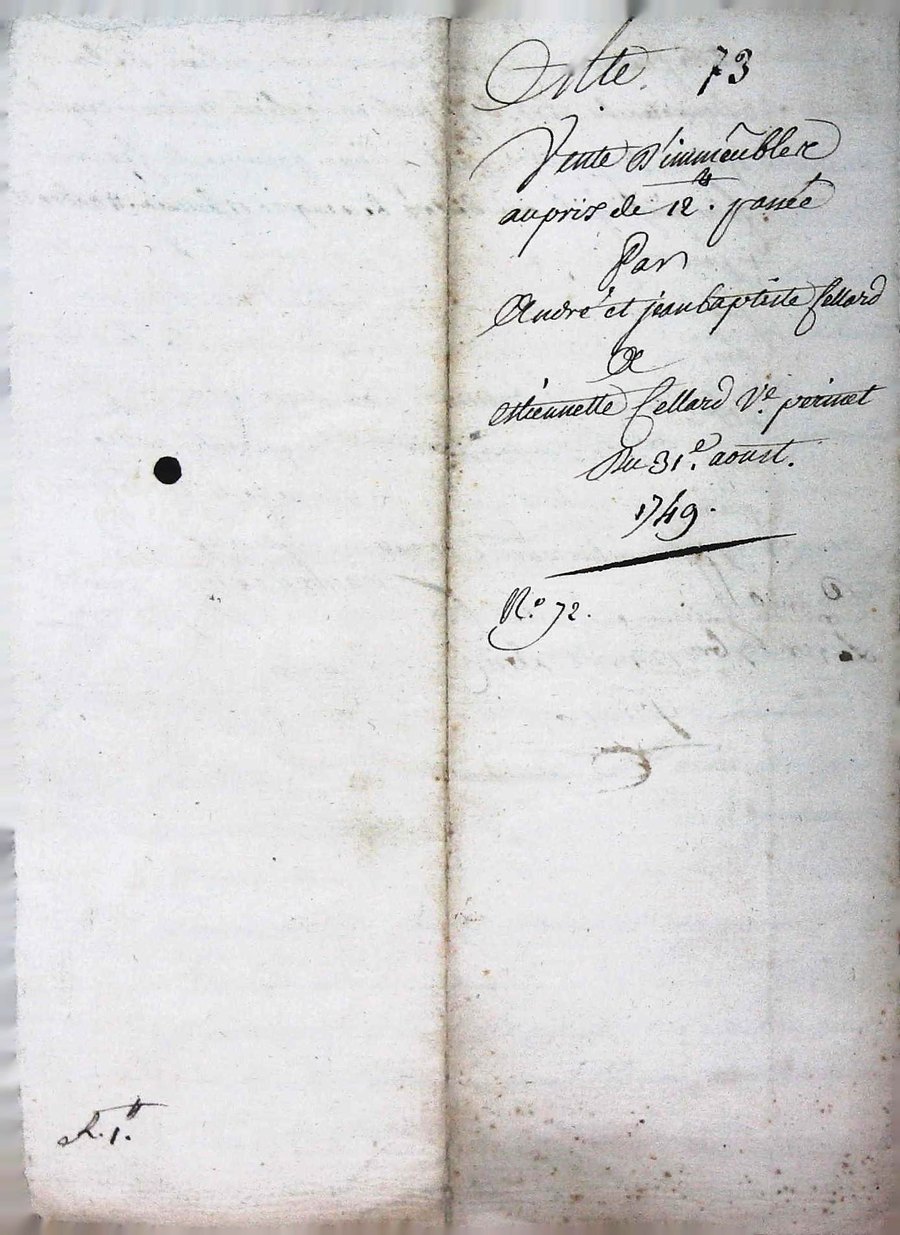 Cotte. 73
Vente d'immeubles
au prix de 12.tt passée
Par
André et jean baptiste Cellard
De
Estiennette Cellard Ve. perinet
Du 31e. aoust.
1749.
No. 72.
R. 1.tt